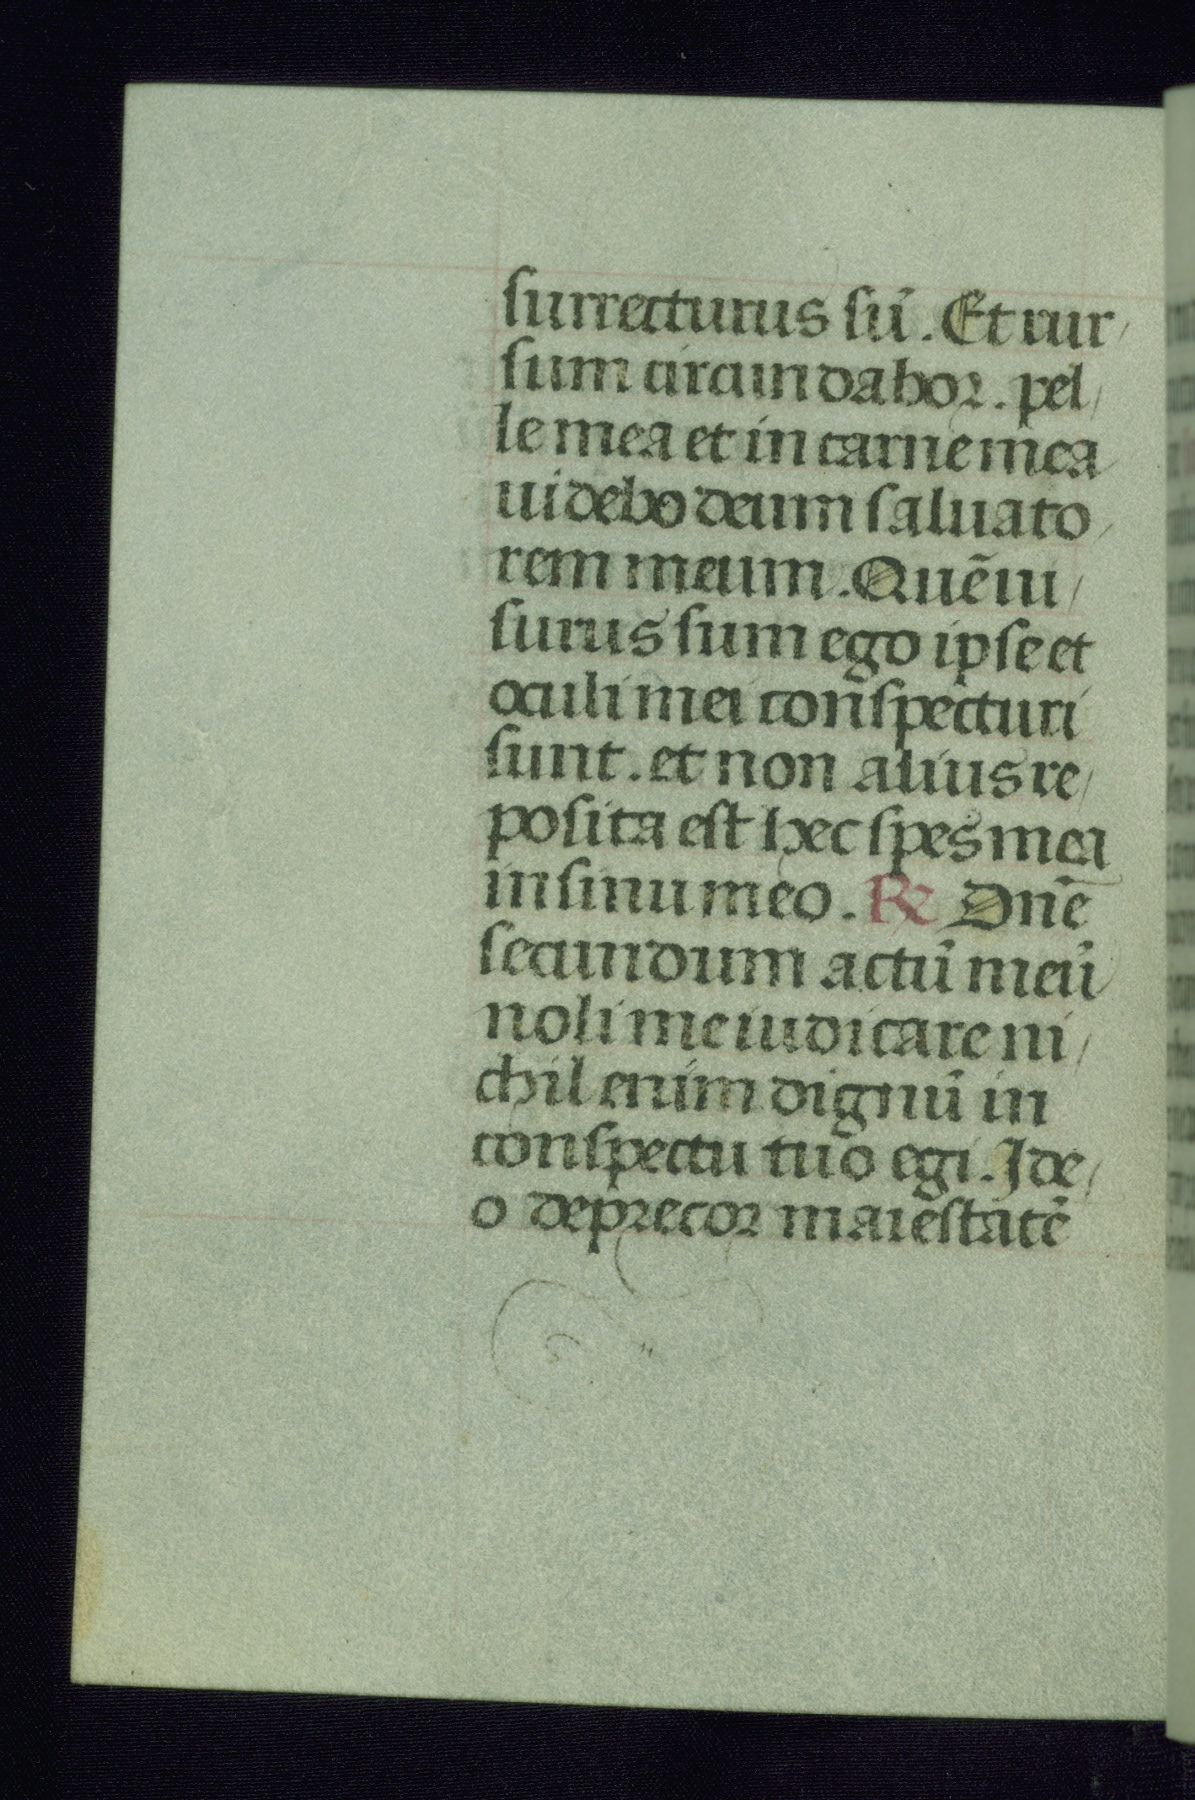 surrecturus sū. Et rur/
sum circundabor. pel/
le mea et in carne mea
uidebo deum saluato/
rem meum. Quē ui/
surus sum ego ipse et
oculi mei conspecturi
sunt. et non alius re/
posita est hec spes mea
in sinu meo. ℟ Dnē
secundum actū meū
noli me iudicare ni/
chil enim dignū in
conspectu tuo egi. Ide/
o deprecor maiestatē